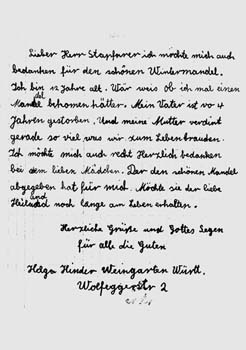 Lieber Herr Stapfarer ich möchte mich auch
bedanken für den schönen Wintermandel.
Ich bin 12 Jahre alt. Wär weis ob ich mal einen
Mandel bekomen hätte. Mein Vater ist vo 4
Jahren gestorben. Und meine Mutter verdint
gerade so viel was wir zum Leben brauden.
Ich möchte mich auch recht Herzlich bedanken
bei dem lieben Mädchen. Dar den schönen Mandel
abgegeben hat für mich. Möchte sie der liebe
Heiland noch lange am Leben erhalten.
Herzliche Grüße und Gottes Segen
für alle die Guten
Helga Hinder Weingarten Württ.
Wolfeggerstr 2